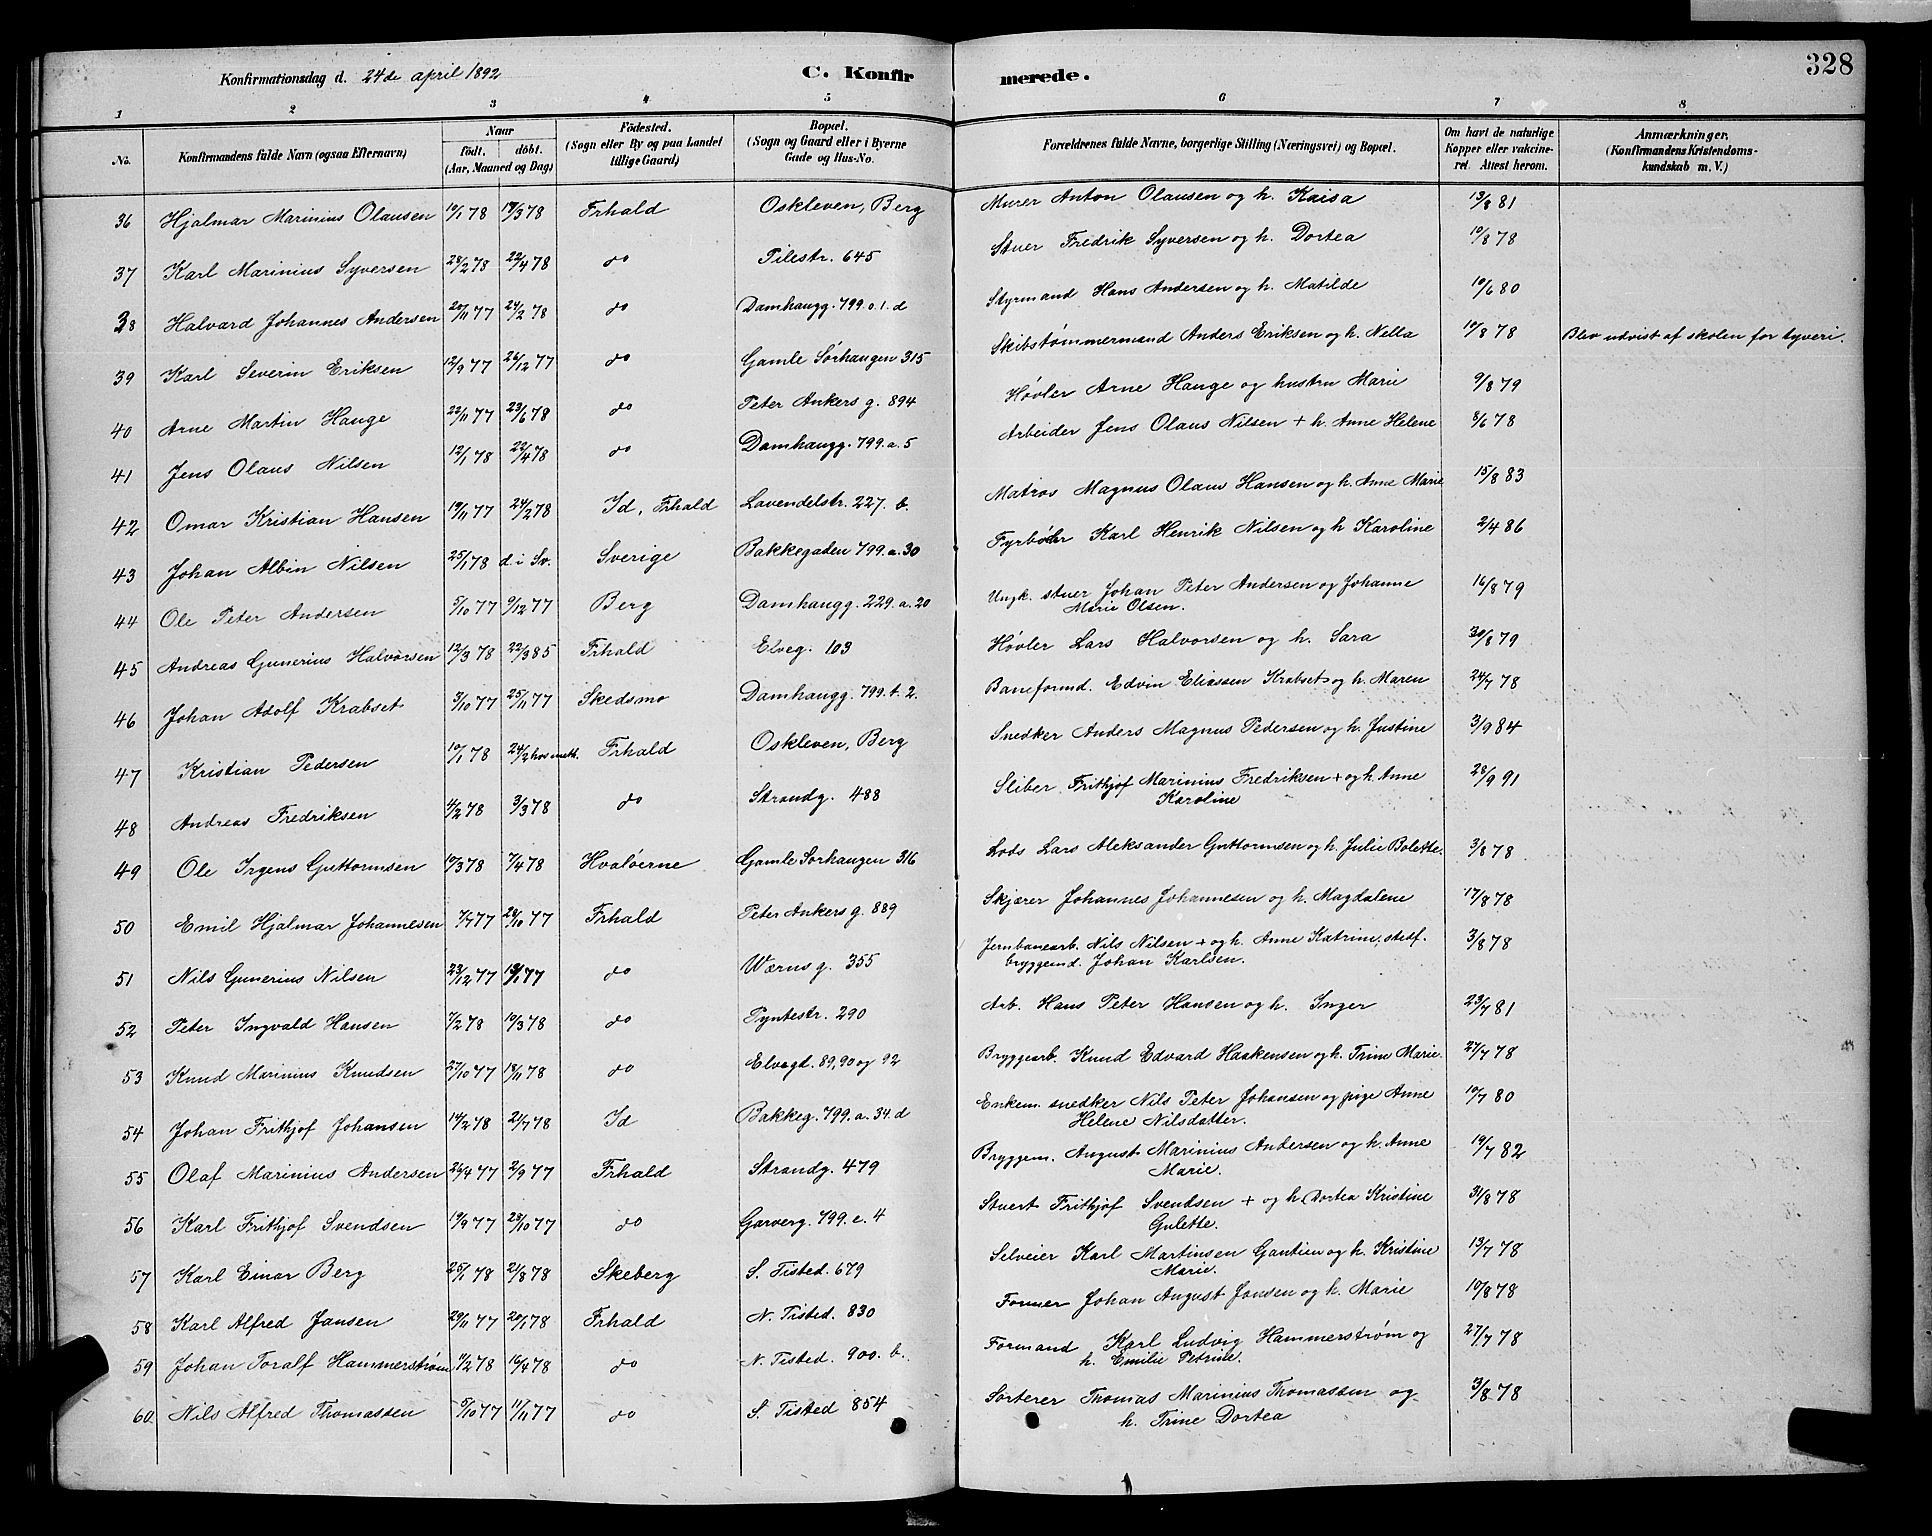 328
Konfirmationsdag d. 24de april 1892
C. Konfirmerede.
1 2 3 4 5 6 7 8
No. Konfirmandens fulde Navn (ogsaa Efternavn) Naar født, døbt. (Aar, Maaned og Dag) Födested. (Sogn eller By og paa Landet tillige Gaard) Bopæl. (Sogn og Gaard eller i Byerne Gade og Hus-No. Forældrenes fulde Navne, borgerlige Stilling (Næringsvei) og Bopæl. Om havt de naturlige Kopper eller vakcineret. Attest herom. Anmærkninger. (Konfirmandens Kristendomskundskab m. V.)
36 Hjalmar Marinius Olausen 10/1 78 17/3 78 Frhald Oskleven, Berg Murer Anton Olausen og h. Kaisa 13/8 81
37 Karl Marinius Syversen 24/2 78 22/4 78 do Pilestr. 645 Stuer Fredrik Syversen og h. Dortea 10/8 78
38 Halvard Johannes Andersen 20/11 77 24/2 78 do Damhaugg. 799.o.1.d Styrmand Hans Andersen og h. Matilde 10/6 80
39 Karl Severin Eriksen 12/9 77 26/12 77 do Gamle Sørhaugen 315 Skibstømmermand Anders Eriksen og h. Nella 10/8 78 Blev udvist af skolen for tyveri.
40 Arne Martin Hauge 22/11 77 23/6 78 do Peter Ankers g. 894 Høvler Arne Hauge og hustru Marie 9/8 79
41 Jens Olaus Nilsen 12/1 78 22/4 78 do Damhaugg. 799.a.5 Arbeider Jens Olaus Nilsen + h. Anne Helene 8/6 78
42 Omar Kristian Hansen 19/11 77 24/2 78 Id, Frhald Lavendelstr. 227. b. Matros Magnus Olaus Hansen og h. Anne Marie 15/8 83
43 Johan Albin Nilsen 25/1 78 d. i Sv. Sverige Bakkegaden 799.a.30 Fyrbøder Karl Henrik Nilsen og h Karoline 2/4 86
44 Ole Peter Andersen 5/10 77 9/12 77 Berg Damhaugg. 229.a.20 Ungk. stuer Johan Peter Andersen og Johanne Marie Olsen. 16/8 79
45 Andreas Gunerius Halvorsen 12/3 78 22/3 85 Frhald Elveg. 103 Høvler Lars Halvorsen og h. Sara 30/8 79
46 Johan Adolf Krabset 3/10 77 25/11 77 Skedsmo Damhaugg. 799.b.2. Baneformd. Edvin Eliassen Krabset og h. Maren 24/7 78
47 Kristian Pedersen 10/1 78 24/2 hos meth. Frhald Oskleven, Berg Snedker Anders Magnus Pedersen og h. Justine 3/9 84
48 Andreas Fredriksen 4/2 78 3/3 78 do Strandg. 488 Sliber Frithjof Marinius Fredriksen + og h. Anne Karoline 28/9 91
49 Ole Irgens Guttormsen 10/3 78 7/4 78 Hvaløerne Gamle Sørhaugen 316 Lods Lars Aleksander Guttormsen og h. Julie Bolette. 3/8 78
50 Emil Hjalmar Johannesen 7/7 77 28/10 77 Frhald Peter Ankers g. 889 Skjærer Johannes Johannesen og h. Magdalene 17/8 78
51 Nils Gunerius Nilsen 23/12 77 77 do Wærns g. 355 Jernbanearb. Nils Nilsen + og h. Anne Katrine, stedf. bryggemd. Johan Karlsen. 3/8 78
52 Peter Ingvald Hansen 7/2 78 10/3 78 do Pyntestr. 290 Arb. Hans Peter Hansen og h. Inger 23/7 81
53 Knud Marinius Knudsen 27/10 77 18/11 78 do Elvegt. 89, 90 og 92 Bryggearb. Knud Edvard Haakensen og h. Trine Marie. 27/7 78
54 Johan Frithjof Johansen 14/2 78 21/7 78 Id Bakkeg. 799.a.34.d Enkem. snedker Nils Peter Johansen og pige Anne Helene Nilsdatter. 10/7 80
55 Olaf Marinius Andersen 26/4 77 2/9 77 Frhald Strandg. 479 Bryggem. August Marinius Andersen og h. Anne Marie. 19/7 82
56 Karl Frithjof Svendsen 19/9 77 28/10 77 do Garverg. 799.c.4 Stuert Frithjof Svendsen + og h. Dortea Kristine Gulette. 31/8 78
57 Karl Einar Berg 25/1 78 2/8 78 Skeberg S. Tisted. 679 Selveier Karl Martinsen Gantien og h. Kristine Marie. 13/7 78
58 Karl Alfred Jansen 29/11 77 20/1 78 Frhald N. Tisted. 830 Former Johan August Jonsen og h. Marie 10/8 78
59 Johan Toralf Hammerstrøm 11/2 78 16/4 78 do N. Tisted. 900. b. Formand Karl Ludvig Hammerstrøm og h. Emilie Petrine. 27/7 78
60 Nils Alfred Thomassen 5/10 77 11/11 77 do S. Tisted 854 Sorterer Thomas Marinius Thomassen og h. Trine Dortea 3/8 78